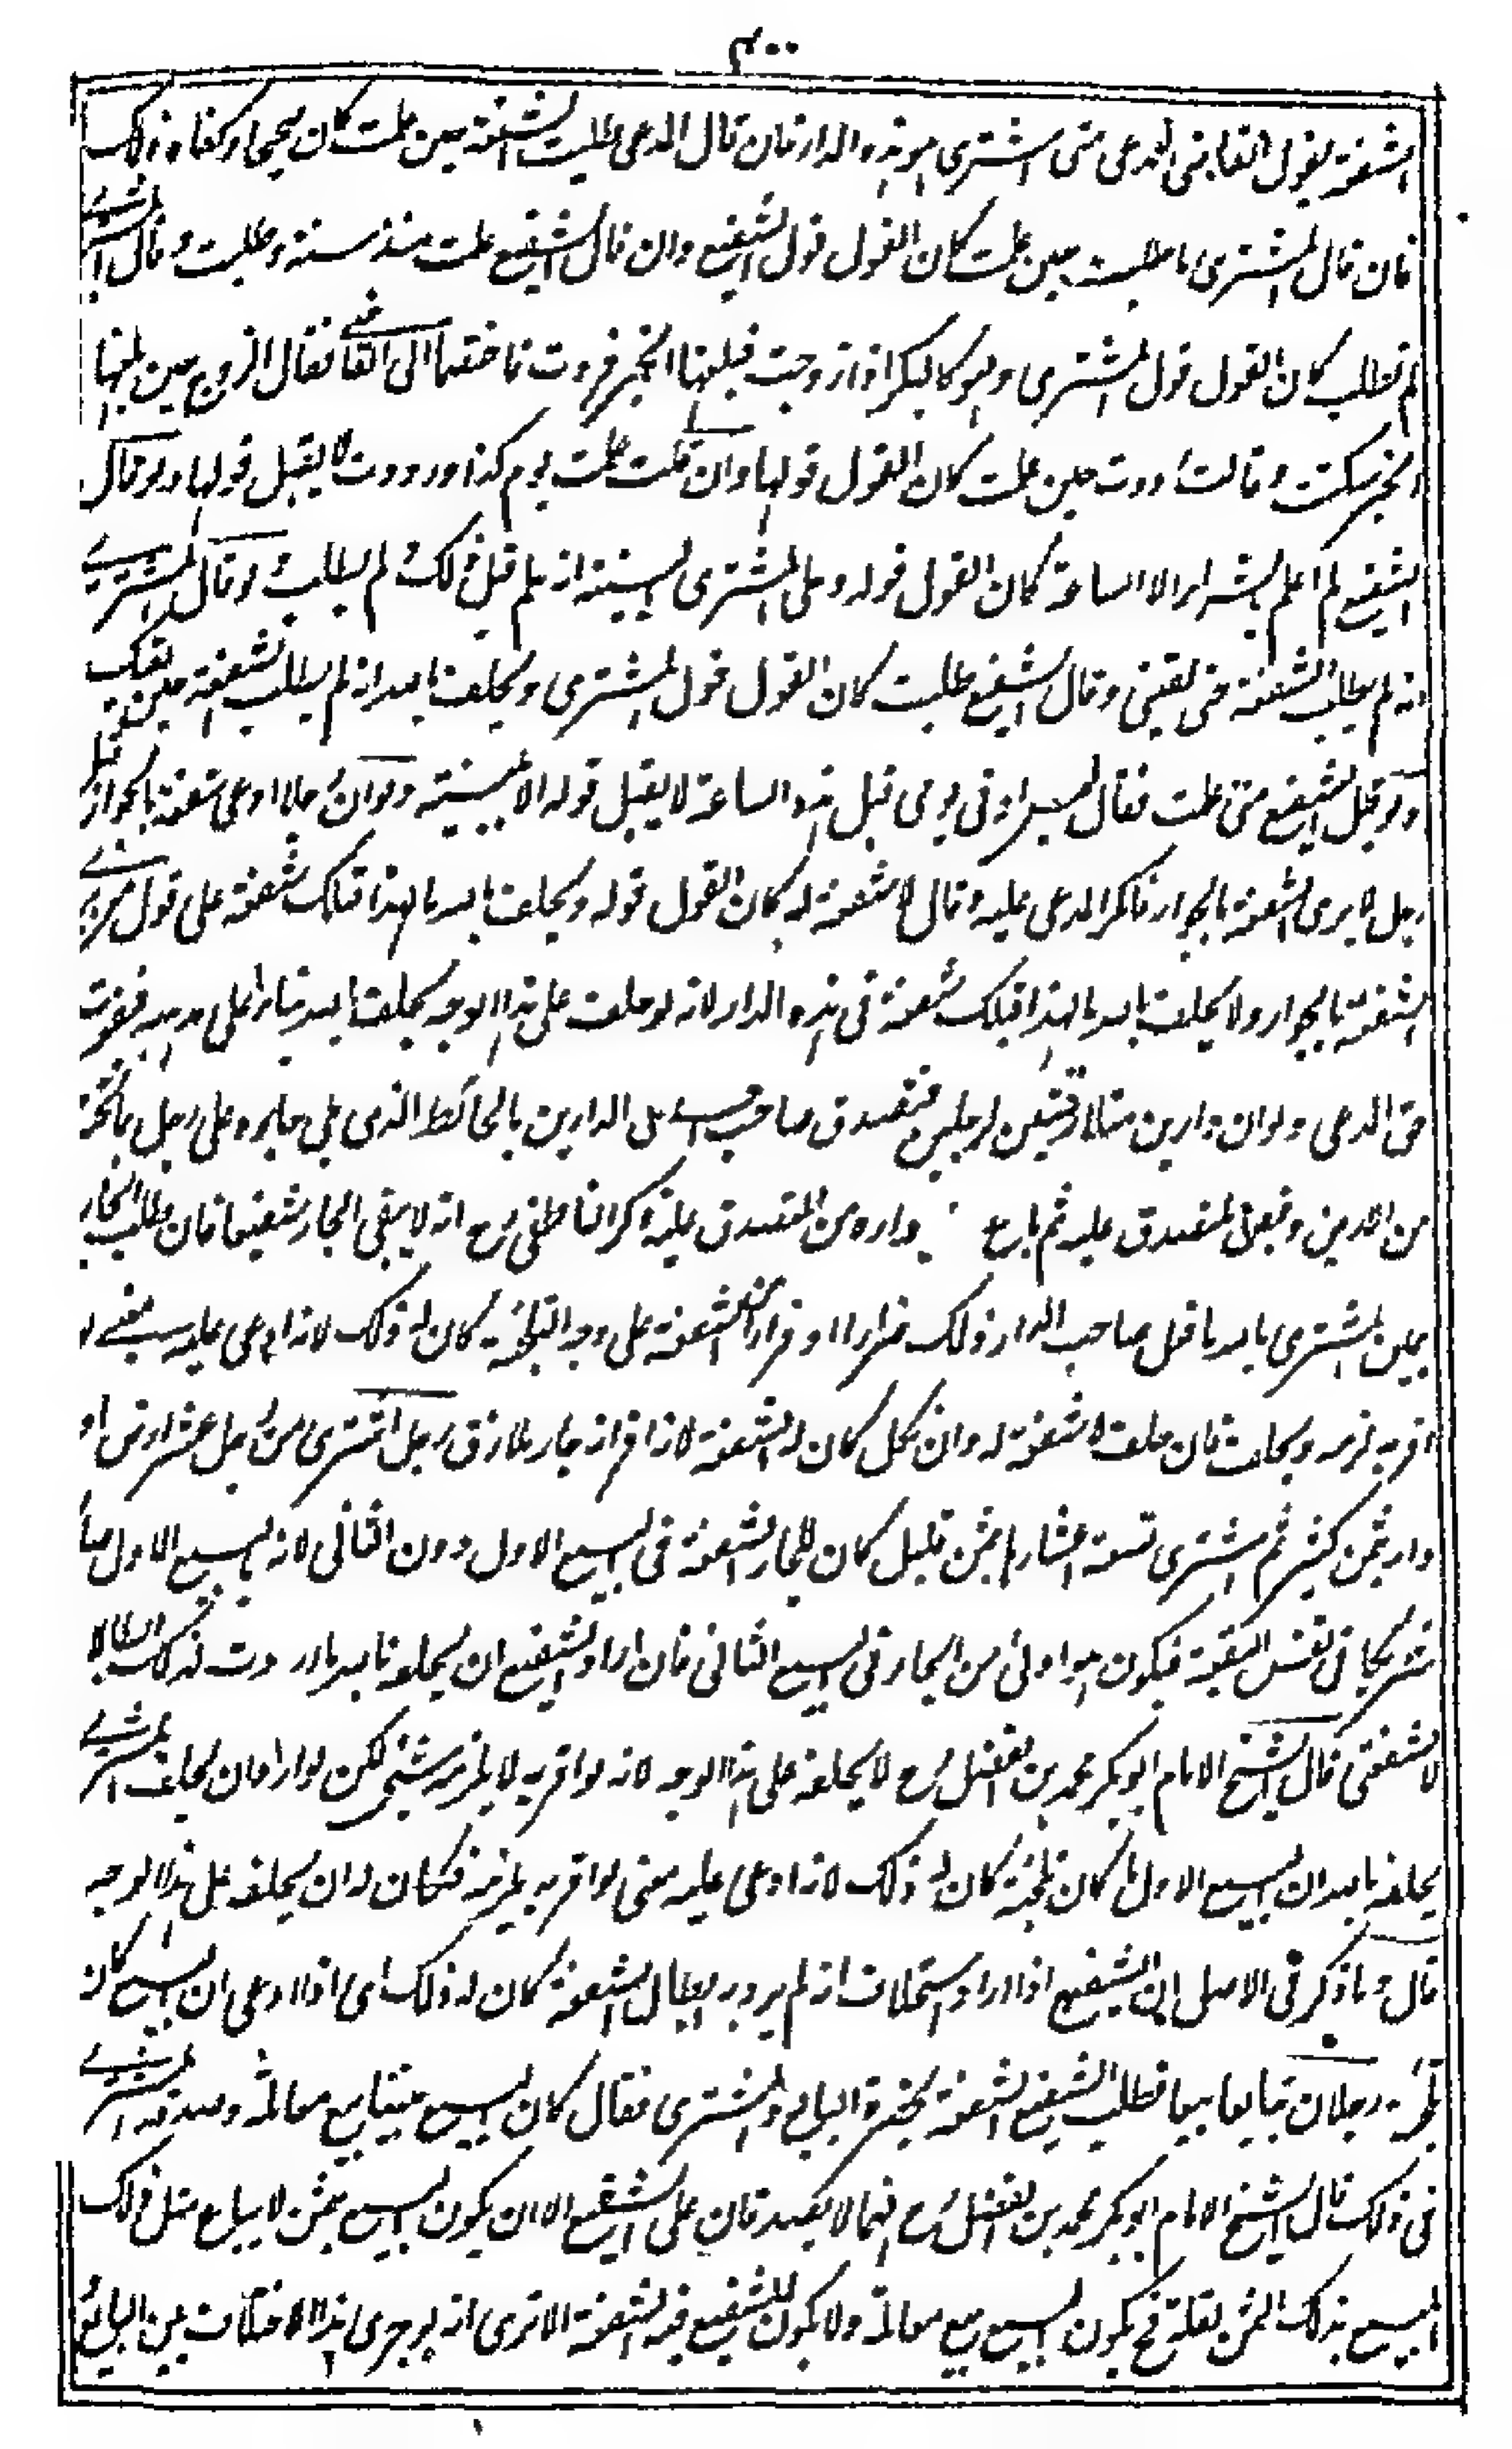 ٤٠٠
الشفعة يقول القاضى للمدعى متى اشترى هو هذه الدار فان قال المدعى طلبت الشفعة حين علمت كان صحيحا وكفاه ذلك
فان قال المشترى ما طلبت حين علمت كان القول قول الشفيع وان قال الشفيع علمت منذ سنة وطلبت وقال المشترى
لم تطلب كان القول قول المشترى وهو كالبكر اذا زوجت فبلغها الخبر فردت فاختصما الى القاضى فقال الزوج حين بلغها
الخبر سكتت وقالت رددت حين علمت كان القول قولها وان قالت علمت يوم كذا ورددت لا يقبل قولها ولو قال
الشفيع لم اعلم بالشراء الا الساعة كان القول قوله وعلى المشترى البينة انه علم قبل ذلك ولم يطلب ولو قال المشترى
انه لم يطلب الشفعة حتى لقينى وقال الشفيع طلبت كان القول قول المشترى ويحلف بالله انه لم يطلب الشفعة حين لقيك
ولو قيل للشفيع متى علمت فقال امس او فى يومى قبل هذه الساعة لا يقبل قوله الا ببينة ولو ان رجلا ادعى شفعة بالجوار قبل
رجل لا يرى الشفعة بالجوار فانكر المدعى عليه وقال لا شفعة له كان القول قوله ويحلف بالله ما لهذا قبلك شفعة على قول من يرى
الشفعة بالجوار ولا يحلف بالله ما لهذا قبلك شفعة فى هذه الدار لانه لو حلف على هذا الوجه يحلف بالله متاولا على مذهبه فيفوت
حق المدعى ولو ان دارين متلازقتين لرجلين فتصدق صاحب احدى الدارين بالحائط الذى يلى جاره على رجل بما تحته
من الارض وقبض المتصدق عليه ثم باع داره من المتصدق عليه ذكر الناطفى رح انه لا يبقى الجار شفيعا فان طلب الجار
يمين المشترى بالله ما فعل صاحب الدار ذلك ضرارا او فرارا من الشفعة على وجه التلجئة كان له ذلك لانه ادعى عليه معنى لو
اقر به لزمه ويحلف فان حلف لا شفعة له وان نكل كان له الشفعة لانه اقر انه جار ملازق رجل اشترى من رجل عشر ارض او
دار بثمن كثير ثم اشترى تسعة اعشارها بثمن قليل كان للجار الشفعة فى البيع الاول دون الثانى لانه بالبيع الاول صار
شريكا فى نفس البقعة فيكون هو اولى من الجار فى البيع الثانى فان اراد الشفيع ان يحلفه بالله ما اردت بذلك ابطالا
لشفعتى قال الشيخ الامام ابو بكر محمد بن الفضل رح لا يحلفه على هذا الوجه لانه لو اقر به لا يلزمه شئ لكن لو اراد ان يحلف المشترى
يحلفه بالله ان البيع الاول ما كان تلجئة كان له ذلك لانه ادعى عليه معنى لو اقر به يلزمه فكان له ان يحلفه على هذا الوجه
قال وما ذكر فى الاصل ان الشفيع اذا اراد استحلافه انه لم يرد به ابطال الشفعة كان له ذلك اى اذا ادعى ان البيع كان
تلجئة رجلان تبايعا بيعا فطلب الشفيع الشفعة بحضرة البائع والمشترى فقال كان البيع بيننا بيع معاملة وصدقه المشترى
فى ذلك قال الشيخ الامام ابو بكر محمد بن الفضل رح انهما لا يصدقان على الشفيع الا ان يكون البيع بثمن لا يباع مثل ذلك
المبيع بذلك الثمن لقلته فح يكون البيع بيع معاملة ولا يكون للشفيع فيه الشفعة الا ترى انه لو جرى هذا الاختلاف بين البائع